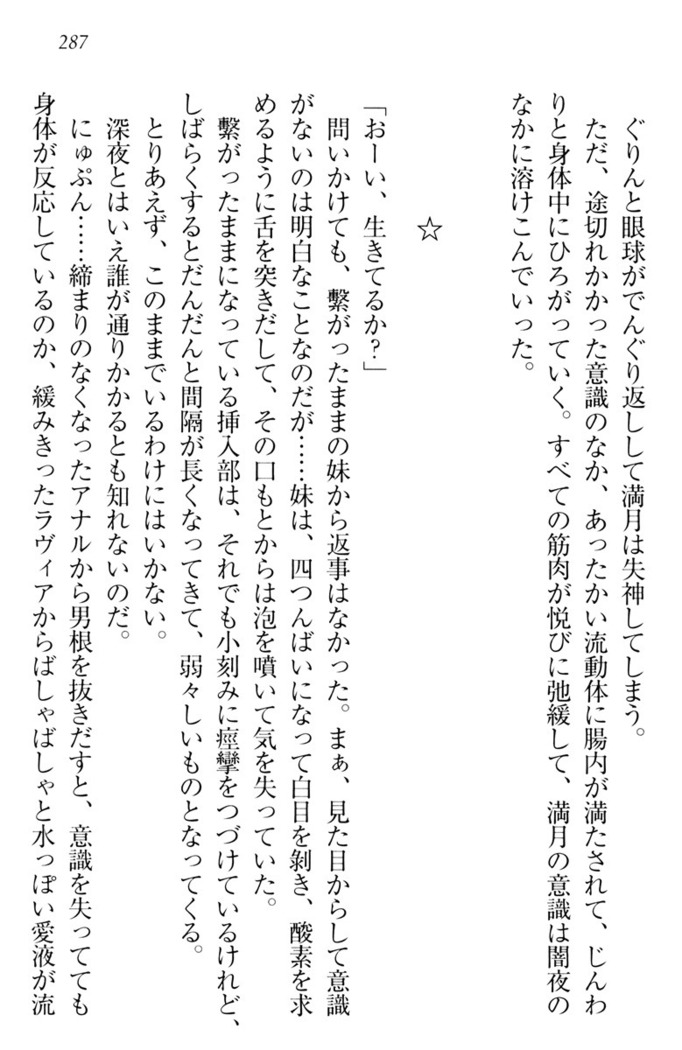 287
ぐりんと眼球がでんぐり返しして満月は失神してしまう。
ただ、途切れかかった意識のなか、あったかい流動体に腸内が満たされて、じんわ
りと身体中にひろがっていく。すべての筋肉が悦びに弛緩して、満月の意識は闇夜の
なかに溶けこんでいった。
☆
「おーい、生きてるか？」
問いかけても、繋がったままの妹から返事はなかった。まぁ、見た目からして意識
がないのは明白なことなのだが……妹は、四つんばいになって白目を剝き、酸素を求
めるように舌を突きだして、その口もとからは泡を噴いて気を失っていた。
繋がったままになっている挿入部は、それでも小刻みに痙攣をつづけているけれど、
しばらくするとだんだんと間隔が長くなってきて、弱々しいものとなってくる。
とりあえず、このままでいるわけにはいかない。
深夜とはいえ誰が通りかかるとも知れないのだ。
にゅぷん……締まりのなくなったアナルから男根を抜きだすと、意識を失ってても
身体が反応しているのか、緩みきったラヴィアからばしゃばしゃと水っぽい愛液が流